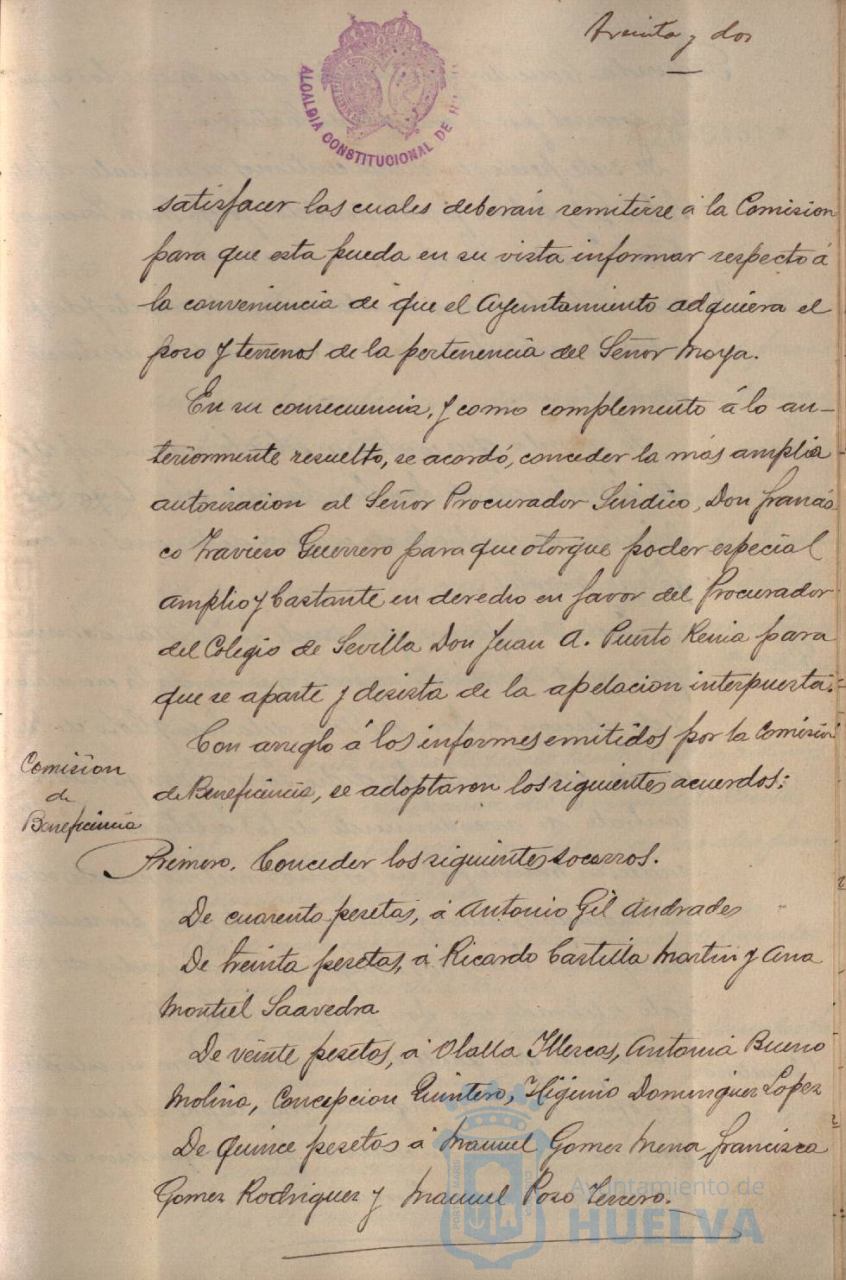 treinta y dos
ALCALDIA CONSTITUCIONAL DE
satisfacer las cuales deberán remitirse á la Comision
para que esta pueda en su vista informar respecto á
la conveniencia de que el Ayuntamiento adquiera el
poso y terrenos de la pertenencia del Señor Moya.
En su consecuencia, y como complemento á lo an-
teriormente resuelto, se acordó, conceder la más amplia
autorisacion al Señor Procurador Sindico, Don Francis-
co Travieso Guerrero para que otorgue poder especial
amplio y bastante en derecho en favor del Procurador
del Colegio de Sevilla Don Juan A. Puerto
para
que se aparte y desista de la apelacion interpuesta.
Con arreglo á los informes emitidos por la Comision
de Beneficencia, se adoptaron los siguientes acuerdos:
Comision
de
Beneficencia
Primero. Conceder los siguientes socorros.
De cuarenta pesetas, á Antonio Gil Andrades
De treinta pesetas, á Ricardo Castilla Martin y Ana
Montiel Saavedra
De veinte pesetas, á Olalla Illescas, Antonia Bueno
Molina, Concepcion Quintero, Higinio Dominguez Lopez
De quince pesetas á Manuel Gomez Mena, Francisca
Gomez Rodriguez y Manuel Poso Terrero.
Ayuntamiento de
HUELVA